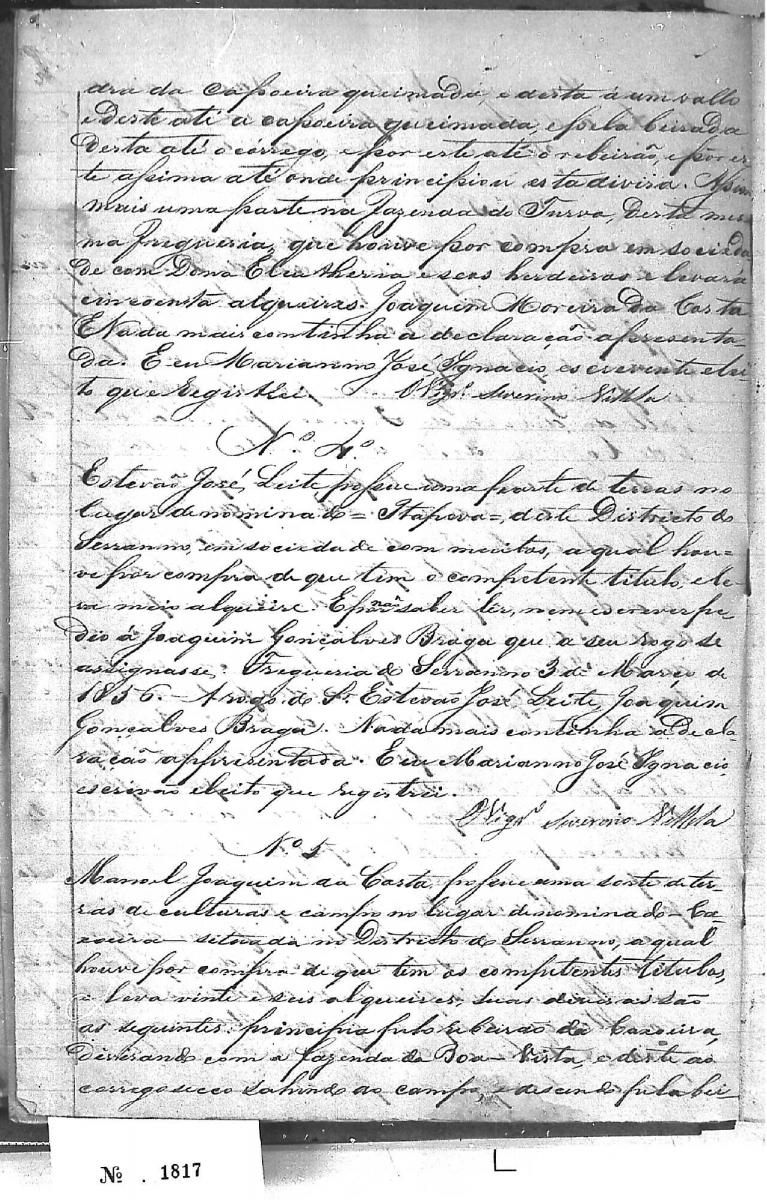 dra da Capoeira queimada, e desta á um vallo
e deste até a capoeira queimada, e pela beirada
desta até o córrego, e por este, até o ribeirão, e por es-
te assima até onde principiou esta diviza.
mais uma parte na Fazenda do Turvo, desta mes-
ma Fregueria, que houve por compra em socieda
de com Dona Eleutheria e seos herdeiros e levará
cincoenta alqueires. Joaquim Moreira da Costa
E Nada mais continha a declaração apresenta-
da. E eu Marianno José Ignacio, escrevente elei-
to que registrei. O Vigr.º Severino Villela
N.º 4.º
Estevão José Leite, possue uma parte de terras no
lugar denominado = Itapeva =, deste Districto do
Serranno, em sociedade com muitos, a qual hou-
ve por compra de que tem o competente titulo, e le-
va meio alqueire. E por não saber ler, nem escrever pe-
dio á Joaquim Gonçalves Braga que a seu rogo se
assignasse. Fregueria do Serranno 3 de Março de
1856. A rogo do Sr. Estevão José Leite, Joaquim
Gonçalves Braga. Nada mais continha a Decla-
ração appresentada. E eu Marianno José Ignacio,
escrivão eleito que registrei.
O Vigr.º Severino Villela
N.º 5
Manoel Joaquim da Costa, possue uma sorte de ter-
ras de culturas e campo no lugar denominado - Ca-
xoeira - situada no Districto do Serranno, a qual
houve por compra de que tem os competentes titulos,
e leva vinte e seis alqueires, suas divizas são
as seguintes: principia pelo ribeirão da Caxoeira,
Divizando com a fazenda da Boa-Vista, e deste ao
corrego secco sahindo ao campo, e descendo pela bei-
Nº . 1817